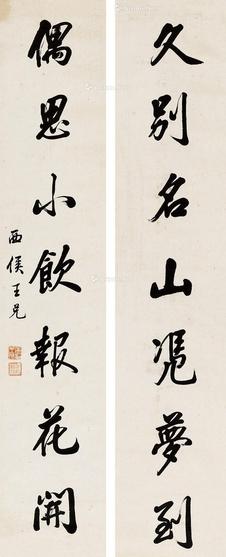 久别名山凭夢到
偶思小飲報花開
西侯王兑